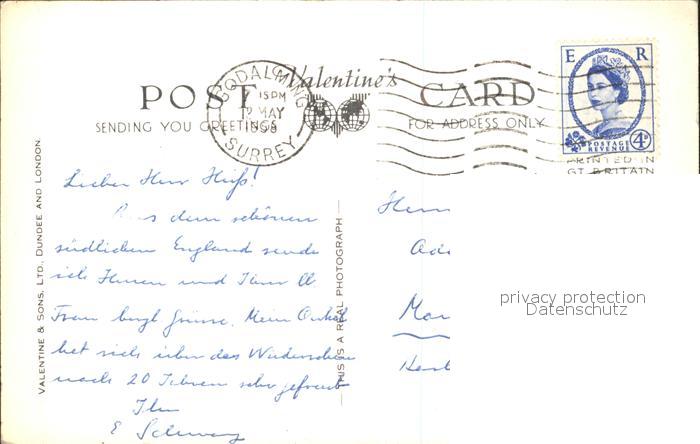 E R
POSTAGE
REVENUE 4D
PRINTED IN
GT BRITAIN
GODALMING
15 PM
MAY
SURREY
Valentine's
POST CARD
SENDING YOU GREETINGS
FOR ADDRESS ONLY
VALENTINE & SONS, LTD., DUNDEE AND LONDON.
THIS IS A REAL PHOTOGRAPH
Lieber Herr Heiß!
Aus dem schönen
südlichen England sende
ich Ihnen und Ihrer
Frau herzl Grüsse. Mein Onkel
hat sich über das Wiedersehen
nach 20 Jahren sehr gefreut
Ihr
E
Herrn
privacy protection
Datenschutz